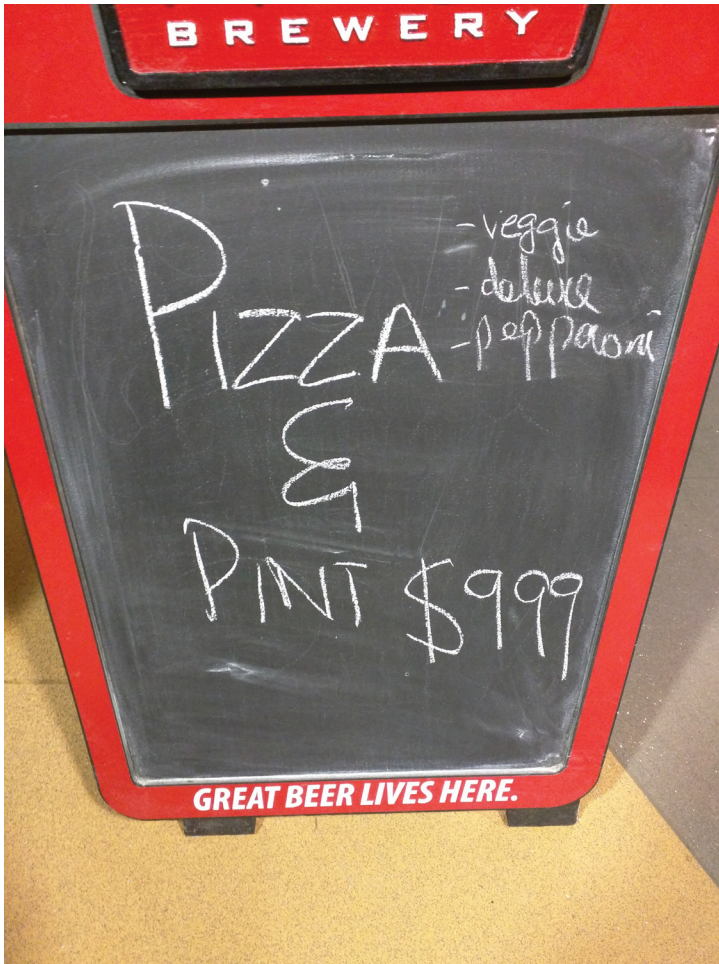 BREWERY
PIZZA
- veggie
- deluxe
- pepparoni
&
PINT $999
GREAT BEER LIVES HERE.